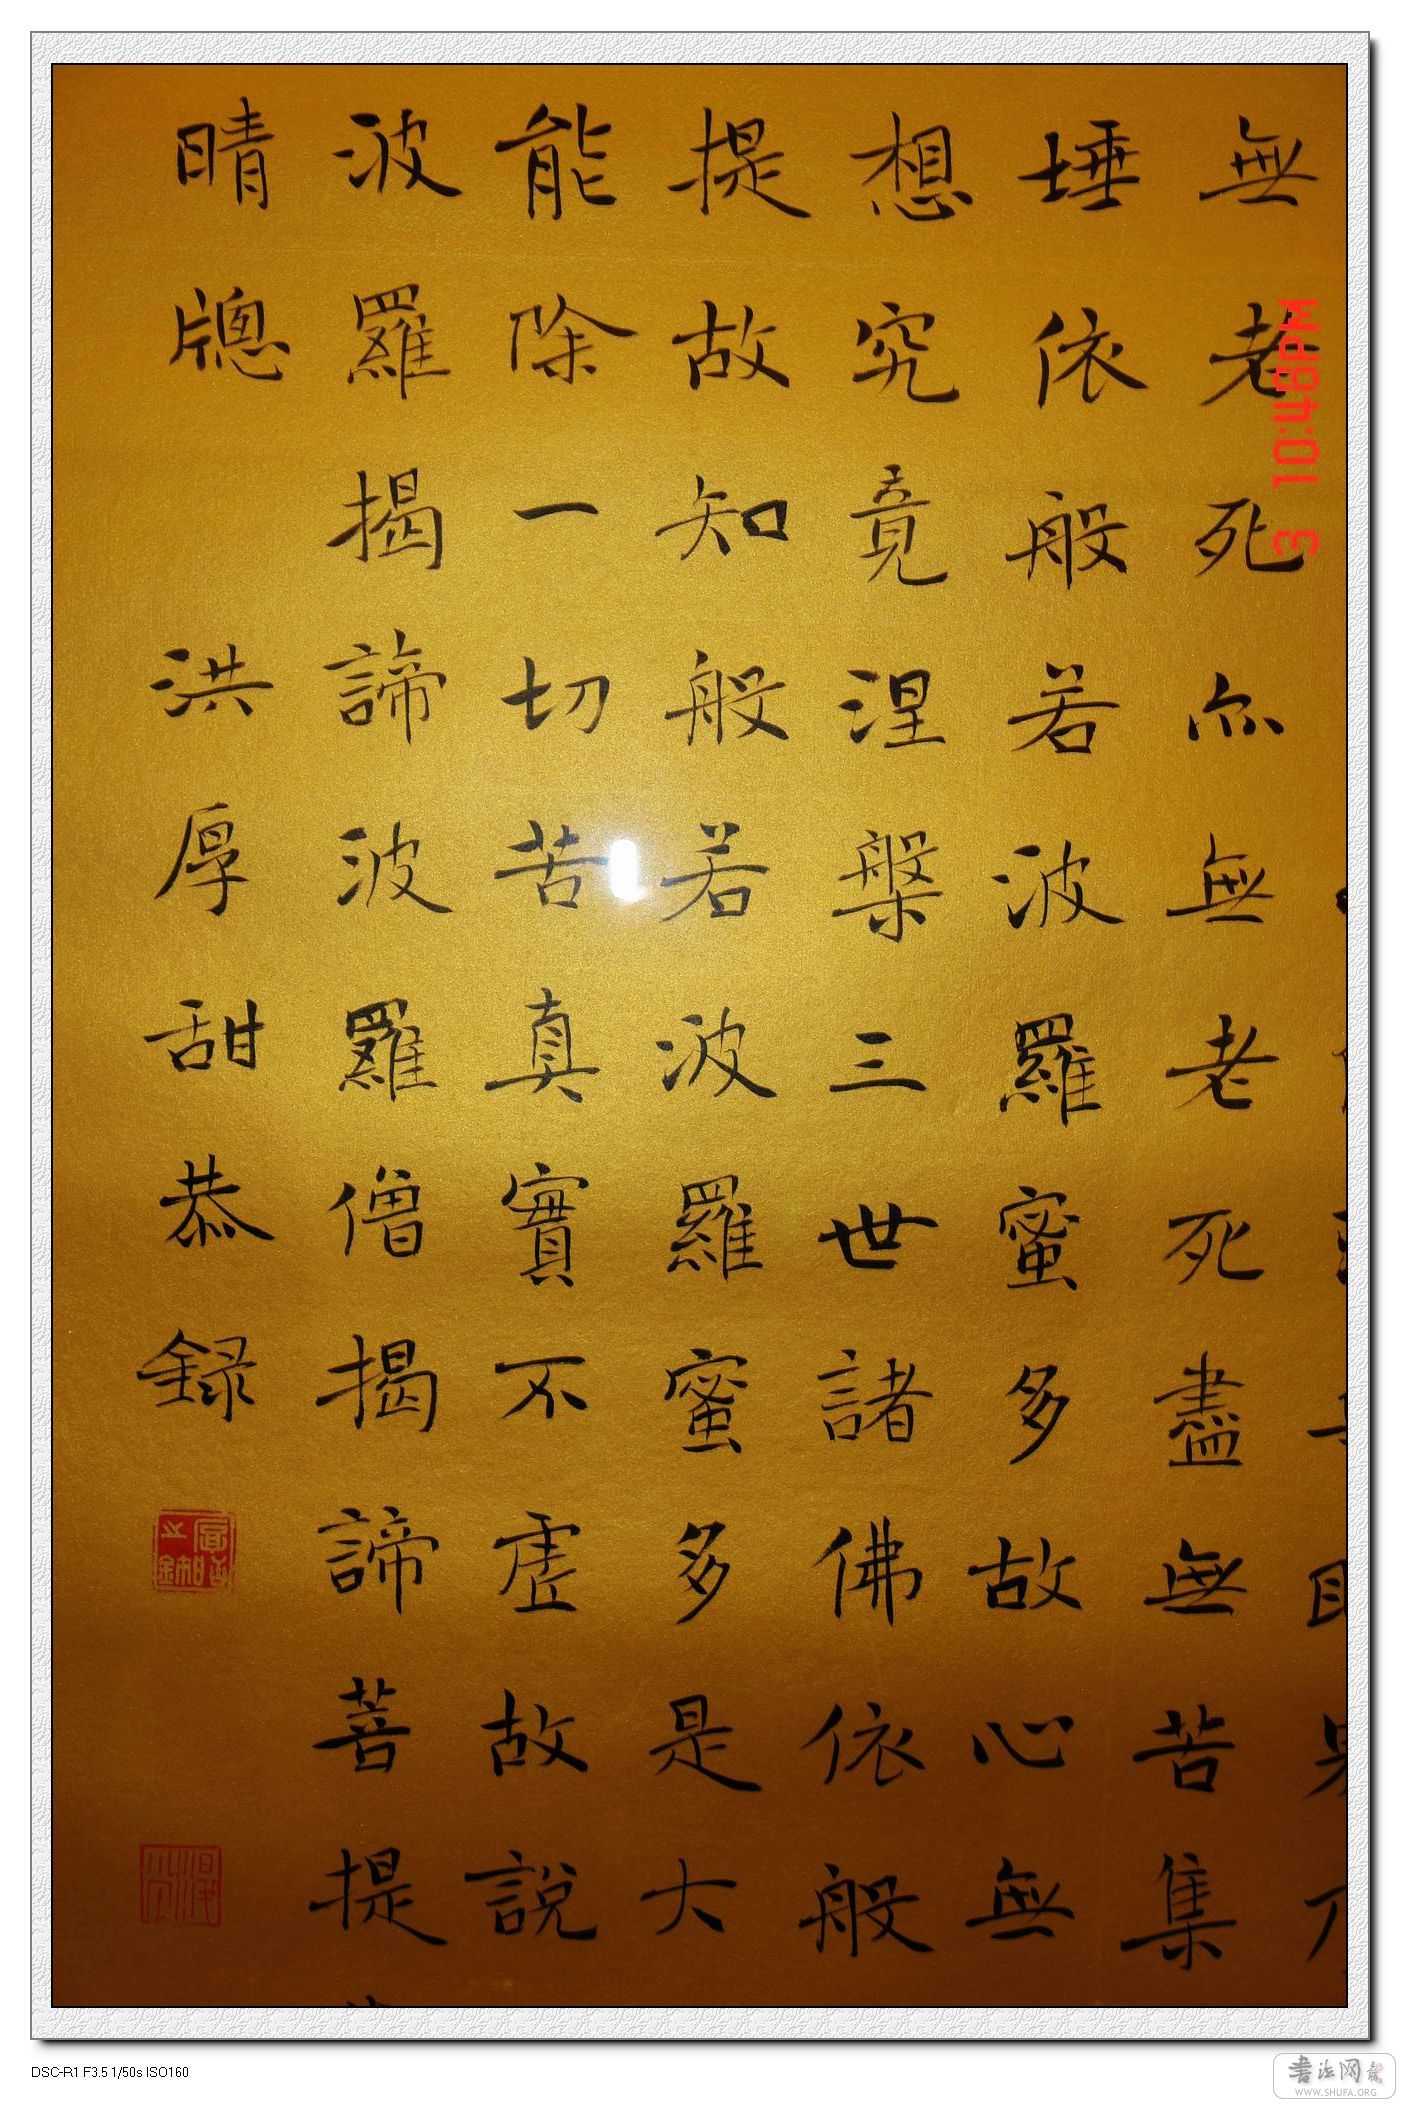 無老死亦無老死盡無苦集
埵依般若波羅蜜多故心無
想究竟涅槃三世諸佛依般
提故知般若波羅蜜多是大
能除一切苦真實不虛故說
波羅揭諦波羅僧揭諦菩提
晴牕 洪厚甜恭録
3 10:46PM
DSC-R1 F3.5 1/50s ISO160
書法网
WWW.SHUFA.ORG